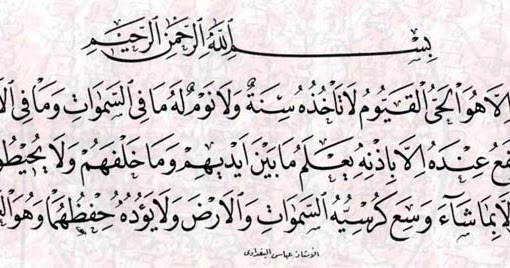 بِسْمِ اللهِ الرَّحْمٰنِ الرَّحِيْمِ
اِلَّا هُوَ الْحَىُّ الْقَيُّومُ لَا تَأْخُذُهُ سِنَةٌ وَلَا نَوْمٌ لَهُ مَا فِى السَّمٰوَاتِ وَمَا فِى
عِنْدَهُ اِلَّا بِاِذْنِهِ يَعْلَمُ مَا بَيْنَ اَيْدِيهِمْ وَمَا خَلْفَهُمْ وَلَا
بِمَا شَاءَ وَسِعَ كُرْسِيُّهُ السَّمٰوَاتِ وَالْاَرْضَ وَلَا يَؤُدُهُ حِفْظُهُمَا وَهُوَ
الاستاذ عباس البغدادي